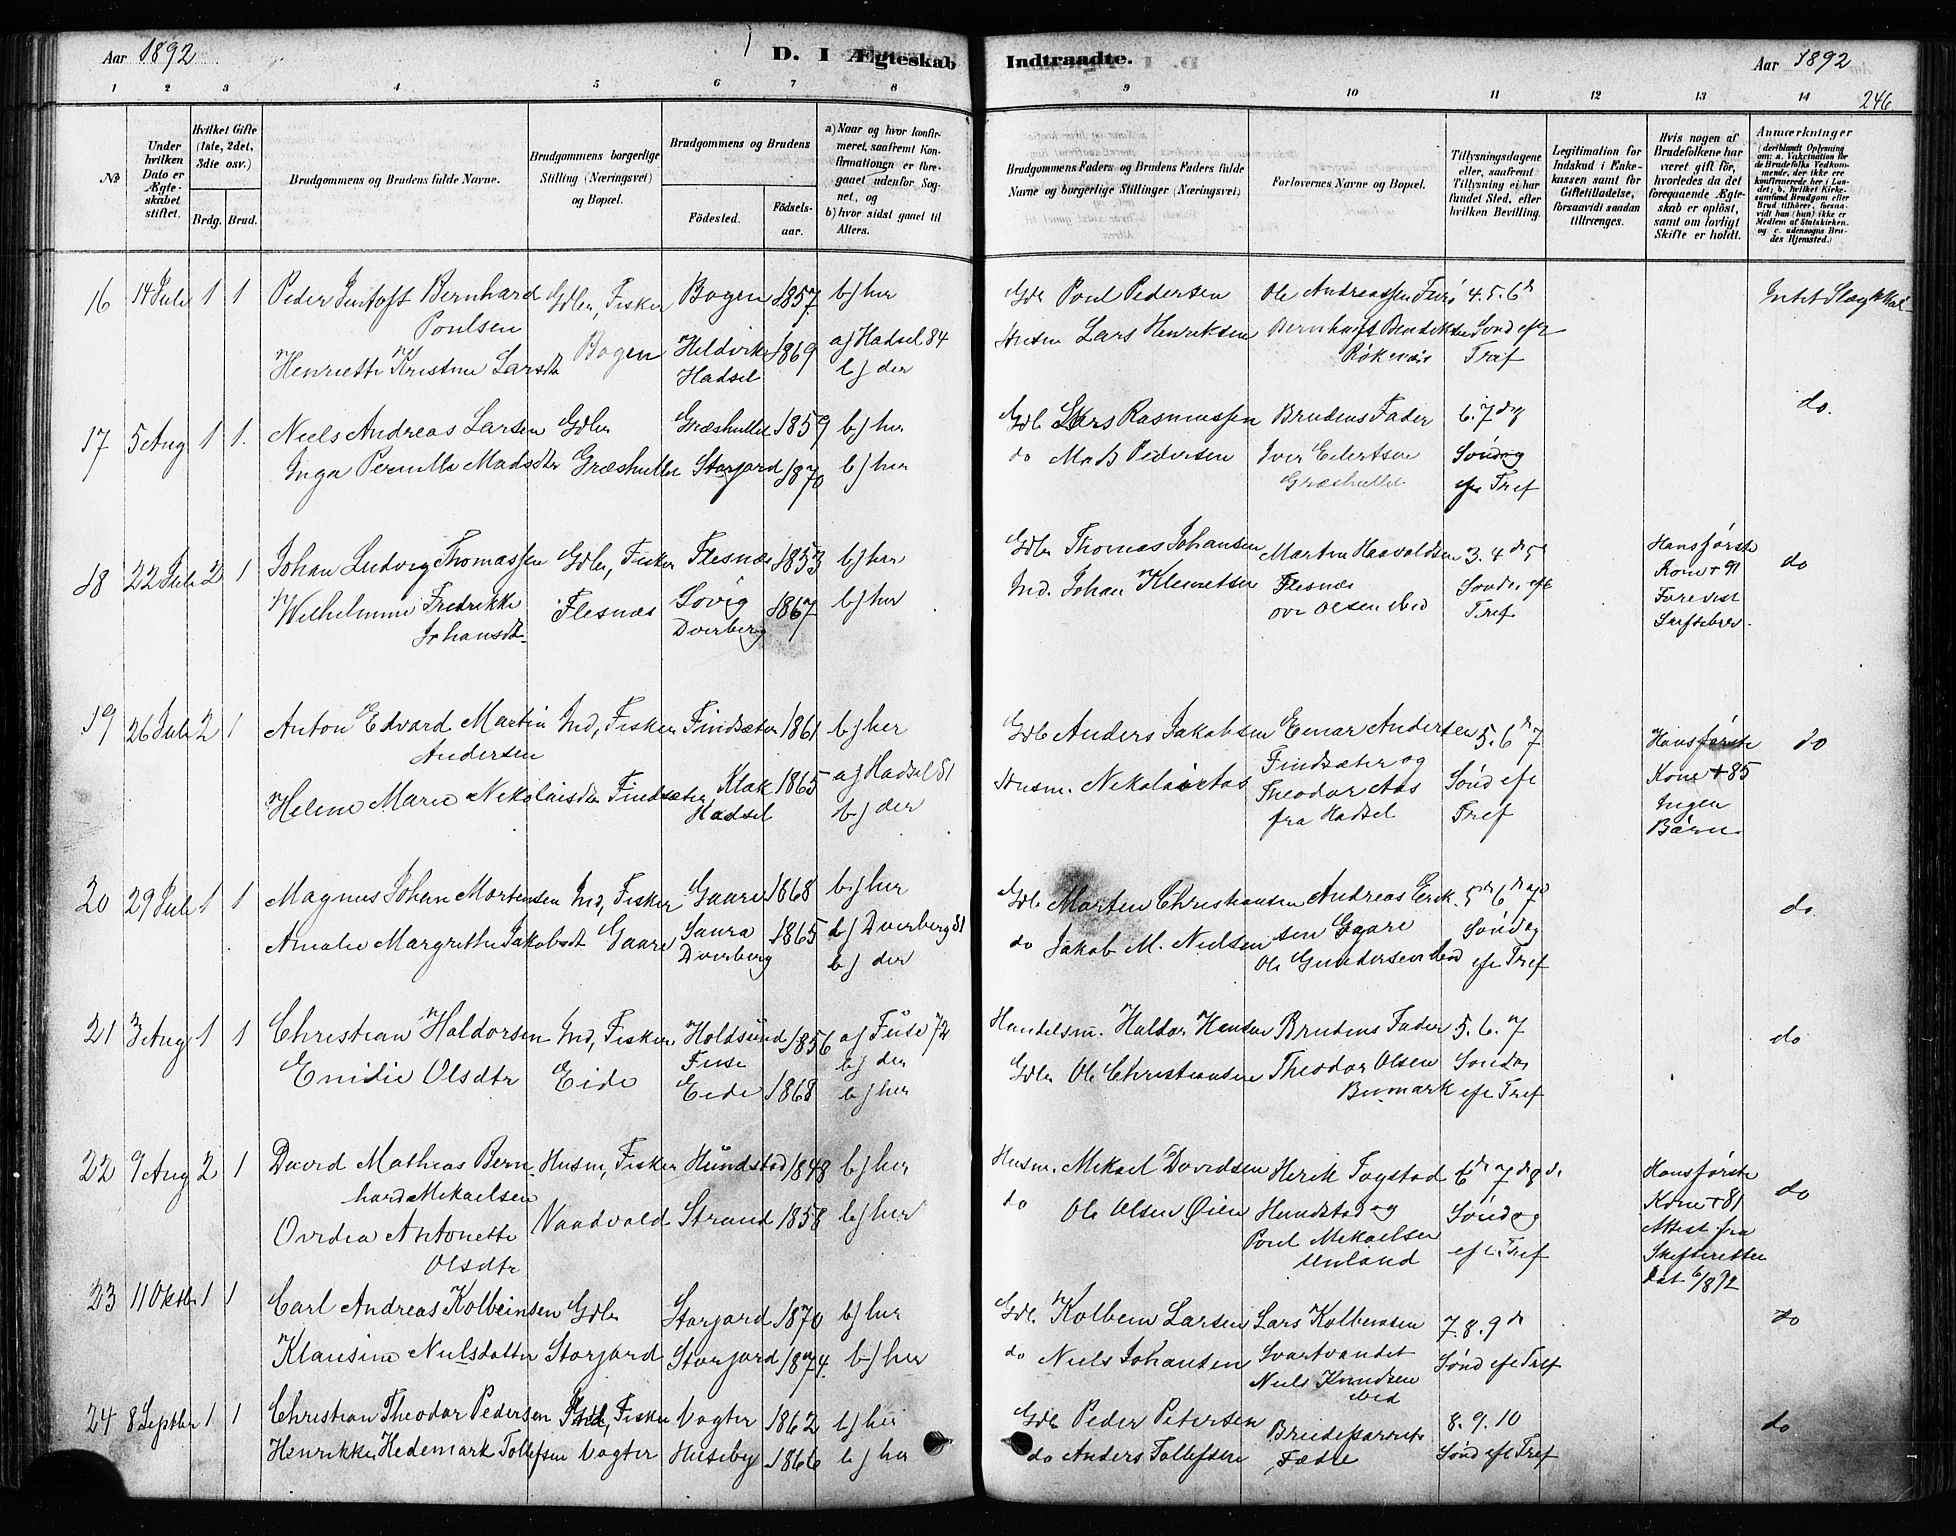 Aar 1892
D. I Ægteskab
Indtraadte.
Aar 1892
1 2 3 4 5 6 7 8 9 10 11 12 13 14
246
No
Under hvilken Dato er Ægteskabet stiftet.
Hvilket Gifte (1ste, 2det, 3die osv.)
Brdg. Brud.
Brudgommens og Brudens fulde Navne.
Brudgommens borgerlige Stilling (Næringsvei) og Bopæl.
Brudgommens og Brudens
Fødested.
Fødselsaar.
a) Naar og hvor konfirmeret, saafremt Konfirmationen er foregaaet udenfor Sognet, og
b) hvor sidst gaaet til Alters.
Brudgommens Faders og Brudens Faders fulde Navne og borgerlige Stillinger (Næringsvei)
Forlovernes Navne og Bopæl.
Tillysningsdagene eller, saafremt Tillysning ei har fundet Sted, efter hvilken Bevilling.
Legitimation for Indskud i Enkekassen samt for Giftetilladelse, forsaavidt saadan tiltrænges.
Hvis nogen af Brudefolkene har været gift før, hvorledes da det foregaaende Ægteskab er opløst, samt om lovligt Skifte er holdt.
Anmærkninger (deriblandt Oplysning om: a. Vaccination for de Brudefolks Vedkommende, der ikke ere konfirmerede her i Landet; b. hvilket Kirkesamfund Brudgom eller Brud tilhører, forsaavidt han (hun) ikke er Medlem af Statskirken, og c. udensogns Brudes Hjemsted.)
16 14 Juli 1 1 Peder Bernhard Gdbr, Fisker Bogen 1857 b) her
Poulsen
Henriette Kristine Larsdtr Bogen Hildvike 1869 a) Hadsel 84
Hadsel b) der
Gdb Poul Pedersen Ole Andreassen 4. 5. 6te
Lars Henriksen Bendiksen Sønd efr
Røknæs Tref
17 5 Aug 1 1. Niels Andreas Larsen Gdbr Græshullet 1859 b) her
Inga Pernille Madsdtr Græshullet Storjord 1870 b) her
Gdb Lars Rasmussen Brudens Fader 6. 7 de
do Mads Pedersen Iver Eilertsen Søndag
Græshullet efr Tref
do.
18 22 Juli 2 1 Johan Ludvig Thomassen Gdbr, Fisker Flesnæs 1853 b) her
Wilhelmine Fredrikke Flesnæs 1867 b) her
Johansdtr. Dverberg
Gdbr Thomas Johansen Martin Haavoldsen 3. 4 de 5
Ind. Johan Klemetsen Flesnæs Sønd. efr
Ove Olsen ibid Tref
Hans første
Kone + 91
Forevist
Skiftebrev.
do
19 26 Juli 2 1 Anton Edvard Martin Ind, Fisker Findsæter 1861 b) her
Andersen
Helene Marie Nikolaisdtr Findsæter Klak 1865 a) Hadsel 81
Hadsel b) der
Gdb Anders Jakobsen Einar Andersen 5. 6 te 7
Findsæter og
Husm. Nikolai Aas Theodor Aas Sønd efr
fra Hadsel Tref
Hans første
Kone + 85
Ingen
Børn
do
20 29 Juli 1 1 Magnus Johan Mortensen Ind, Fisker Gaare 1868 b) her
Amalie Margrethe Jakobsdt Gaare Saura 1865 a) Dverberg 81
Dverberg b) der
Gdb Morten Christiansen Andreas Erik-
sen Gaare
do Jakob M. Nielsen
Ole Gundersen ibid
Søndag
efr Tref
do
21 3 Aug 1 1 Christian Haldorsen Ind, Fisker Holdsund 1856 a) Fuse 72
Fuse b) der
Emilie Olsdtr Eide Eide 1868 b) her
Handelsm. Haldor Hansen Brudens Fader 5. 6. 7
Gdbr Ole Christiansen Theodor Olsen Søndag
efr Tref
do
22 9 Aug 2 1 David Mathias Bern- Husm, Fisker Hundstad 1848 b) her
hard Mikaelsen
Ovidia Antonette Vaadvold Strand 1858 b) her
Olsdtr
Husm. Mikael Davidsen Henrik Fagstad 6te 7de 8de
do Ole Olsen Øien Hundstad og Søndag
Poul Mikaelsen efr. Tref
Hans første
Kone + 81
Attest fra
Skifteretten
Dat 6/8 92
do
23 11 Oktbr 1 1 Carl Andreas Kolbeinsen Gdbr Storjord 1870 b) her
Klausine Nielsdatter Storjord Storjord 1874. b) her
Gdb. Kolbein Larsen Lars Kolbeinsen 7. 8. 9 de
do Niels Johansen Svartvandet Sønd efr Tref
Niels Knudsen
ibid
do
24 8 Septbr 1 1 Christian Theodor Pedersen Ind, Fisker Vogter 1862 b) her
Henrikke Hedemark Tollefsen Vogter 1866 b) her
Gdb Peder Petersen Brudeparrets 8. 9. 10
do Anders Tollefsen Fædre Sønd efr Tref
do